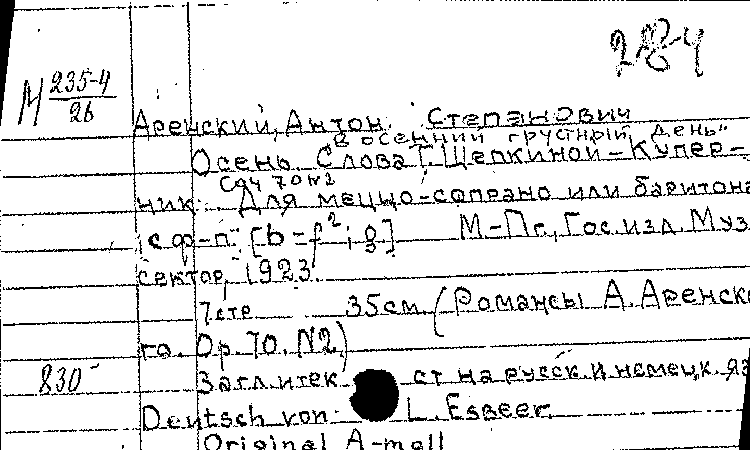 284
М 235-4
26
Аренский, Антон Степанович
"В осенний грустный день"
Осень. Слова Т. Щепкиной-Купер-
соч 70 №2
ник. Для меццо-сопрано или баритона
с ф-п. [b-f²; g] М-Пг., Гос. изд. Муз
сектор, 1923.
7 стр 35 см. (Романсы А. Аренско
го. Op. 70. N2)
830 Загл. и текст на русск. и немецк. яз
Deutsch von L. Esbeer.
Original A-moll